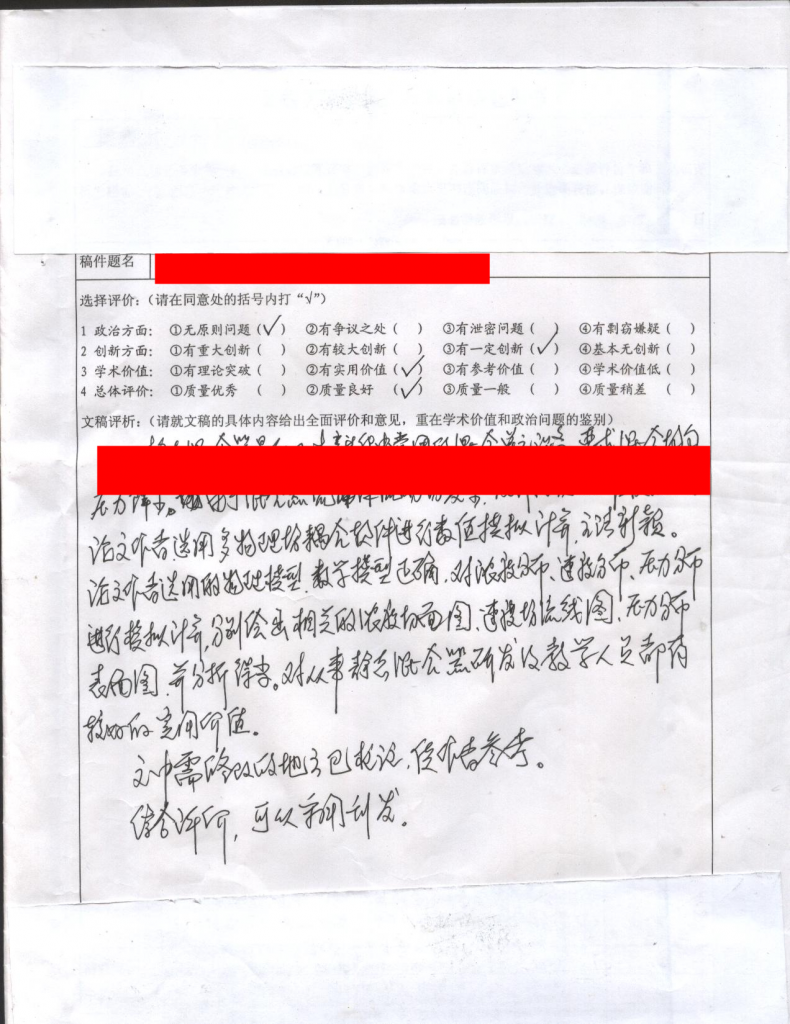 稿件题名
选择评价:(请在同意处的括号内打“√”)
1 政治方面: ①无原则问题(√) ②有争议之处( ) ③有泄密问题( ) ④有剽窃嫌疑( )
2 创新方面: ①有重大创新( ) ②有较大创新( ) ③有一定创新(√) ④基本无创新( )
3 学术价值: ①有理论突破( ) ②有实用价值(√) ③有参考价值( ) ④学术价值低( )
4 总体评价: ①质量优秀( ) ②质量良好(√) ③质量一般( ) ④质量稍差( )
文稿评析:(请就文稿的具体内容给出全面评价和意见,重在学术价值和政治问题的鉴别)
论文作者选用多物理场耦合软件进行数值模拟计算,方法新颖。
论文作者选用的物理模型、数学模型正确,对浓度分布、速度分布、压力分布
进行模拟计算,分别绘出相关的浓度切面图、速度场流线图、压力分布
表面图,并分析得当。对从事静态混合器研发及教学人员都有
较好的实用价值。
文中需修改的地方已标注,供作者参考。
综合评价,可以采用刊发。